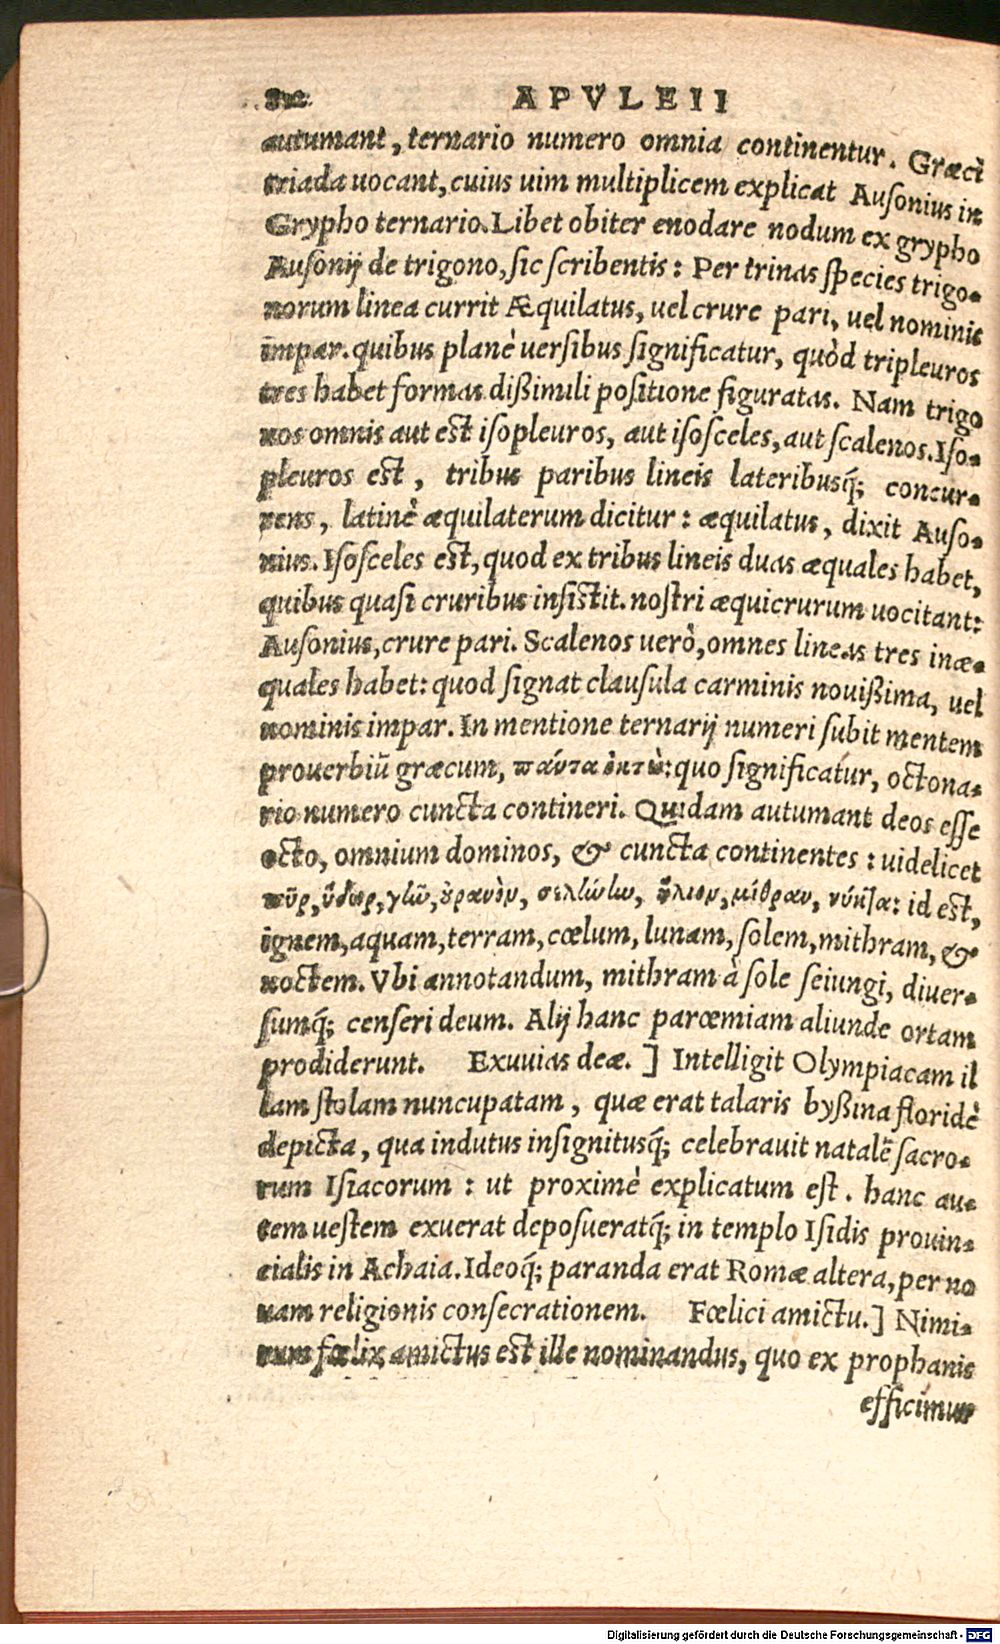 APVLEII
autumant, ternario numero omnia continentur. Græci
triada uocant, cuius uim multiplicem explicat Auſonius in
Grypho ternario. Libet obiter enodare nodum ex grypho
Auſonij de trigono, ſic ſcribentis: Per trinas ſpecies trigo-
norum linea currit Æquilatus, uel crure pari, uel nominis
impar. quibus planè uerſibus ſignificatur, quòd tripleuros
tres habet formas dißimili poſitione figuratas. Nam trigo
nos omnis aut eſt iſopleuros, aut iſoſceles, aut ſcalenos. Iſo-
pleuros eſt, tribus paribus lineis lateribusq́; concur-
rens, latinè æquilaterum dicitur: æquilatus, dixit Auſo-
nius. Iſoſceles eſt, quod ex tribus lineis duas æquales habet,
quibus quaſi cruribus inſiſtit. noſtri æquicrurum uocitant:
Auſonius, crure pari. Scalenos uerò, omnes lineas tres inæ-
quales habet: quod ſignat clauſula carminis nouißima, uel
nominis impar. In mentione ternarij numeri ſubit mentem
prouerbiũ græcum, πάντα ὀκτώ: quo ſignificatur, octona-
rio numero cuncta contineri. Quidam autumant deos eſſe
octo, omnium dominos, & cuncta continentes: uidelicet
πῦρ, ὕδωρ, γῆν, ὀρανὸν, σελήνην, ἥλιον, μίθραν, νύκτα: id eſt,
ignem, aquam, terram, cœlum, lunam, ſolem, mithram, &
noctem. Vbi annotandum, mithram à ſole ſeiungi, diuer-
ſumq́; cenſeri deum. Alij hanc parœmiam aliunde ortam
prodiderunt. Exuuias deæ.] Intelligit Olympiacam il
lam ſtolam nuncupatam, quæ erat talaris byßina floridè
depicta, qua indutus inſignitusq́; celebrauit natalẽ ſacro-
rum Iſiacorum: ut proximè explicatum eſt. hanc au-
tem ueſtem exuerat depoſueratq́; in templo Iſidis prouin-
cialis in Achaia. Ideoq́; paranda erat Romæ altera, per no
uam religionis conſecrationem. Fœlici amictu.] Nimi-
rum fœlix amictus eſt ille nominandus, quo ex prophanis
efficimur
Digitalisierung gefördert durch die Deutsche Forschungsgemeinschaft - DFG